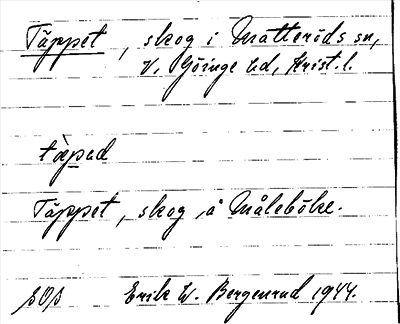 Täppet, skog i Matteröds sn,
V. Göinge hd, Krist. l.
tæ̀pad
Täppet, skog å Måleböke.
SOS Erik W. Bergenrud 1944.